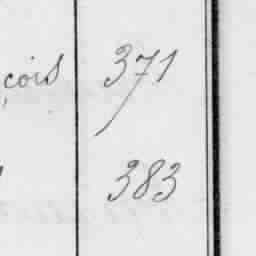 çois 371
383